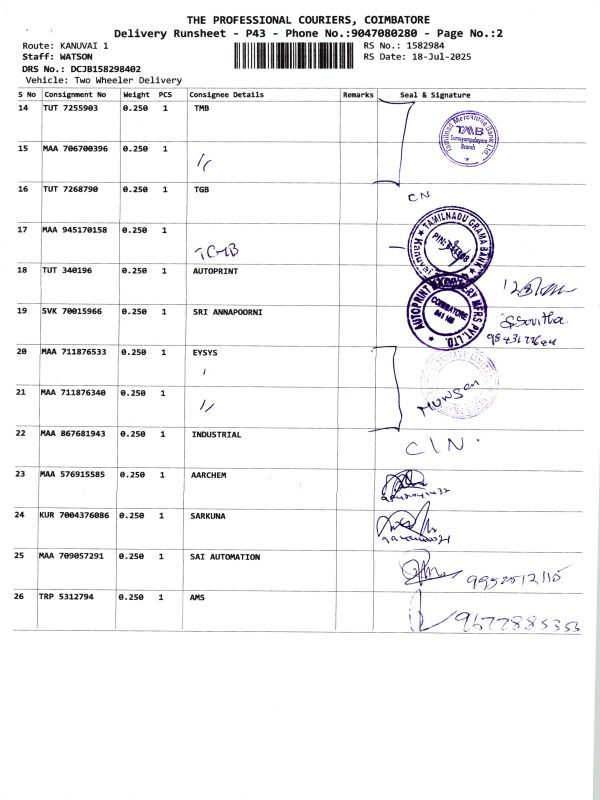 THE PROFESSIONAL COURIERS, COIMBATORE
Delivery Runsheet - P43 - Phone No.:9047080280 - Page No.:2
Route: KANUVAI 1
RS No.: 1582984
Staff: WATSON
RS Date: 18-Jul-2025
DRS No.: DCJB158298402
Vehicle: Two Wheeler Delivery
S No Consignment No Weight PCS Consignee Details Remarks Seal & Signature
14 TUT 7255903 0.250 1 TMB
Tamilnad Mercantile Bank Ltd.
TMB
Somayampalayam
Branch
15 MAA 706700396 0.250 1
16 TUT 7268790 0.250 1 TGB
CN
17 MAA 945170158 0.250 1
TAMILNADU GRAMA BANK
Kanuvai
18 TUT 340196 0.250 1 AUTOPRINT
19 SVK 70015966 0.250 1 SRI ANNAPOORNI
AUTOPRINT MFRS PVT. LTD.
COIMBATORE
Savitha
20 MAA 711876533 0.250 1 EYSYS
21 MAA 711876340 0.250 1
22 MAA 867681943 0.250 1 INDUSTRIAL
CIN.
23 MAA 576915585 0.250 1 AARCHEM
24 KUR 7004376086 0.250 1 SARKUNA
25 MAA 709057291 0.250 1 SAI AUTOMATION
26 TRP 5312794 0.250 1 AMS
9677885353